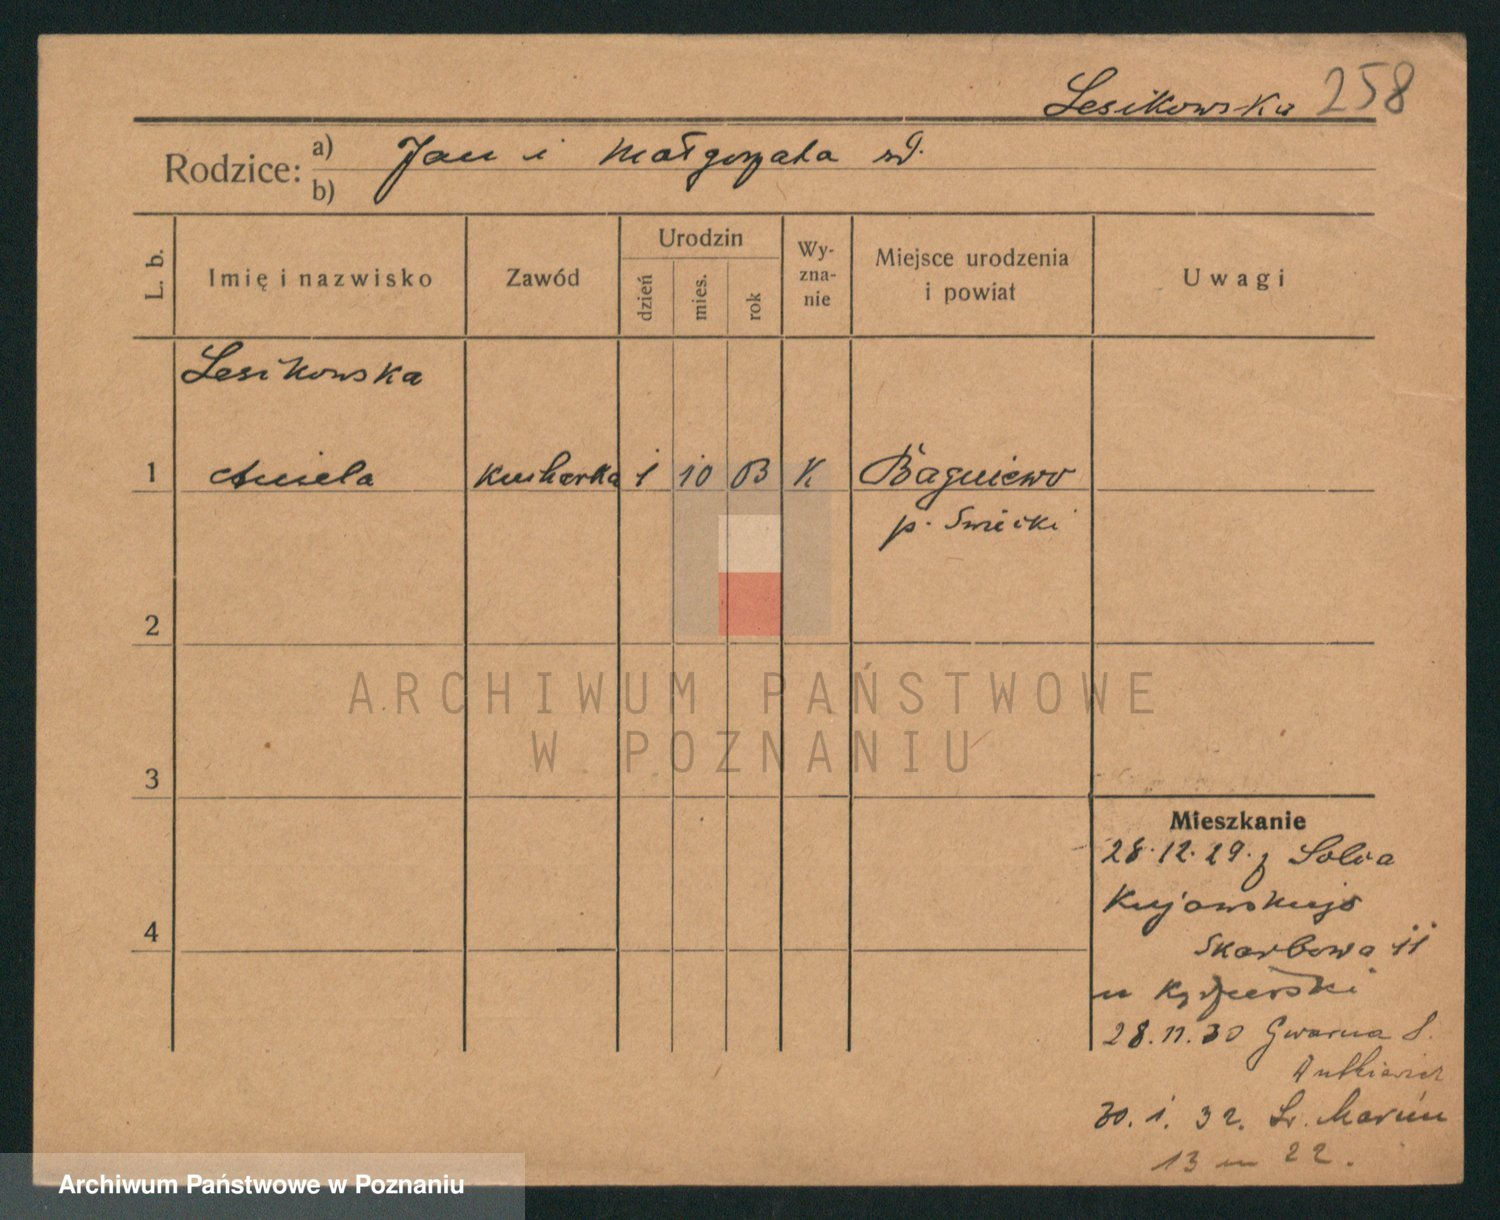 Lesikowska 258
Rodzice: a) Jan i Małgorzata
b)
L. b.
Imię i nazwisko
Zawód
Urodzin
dzień
mies.
rok
Wy-
zna-
nie
Miejsce urodzenia
i powiat
Uwagi
Lesikowska
1 Aniela kucharka 1 10 03 K Bagniewo
p. Świecki
2
3
4
ARCHIWUM PAŃSTWOWE
W POZNANIU
Mieszkanie
28.12.29. z Solca
Kujawskiego
Skarbowa 11
u
28.11.30 Gwarna 8.
Antkiewicz
30.1.32. Św. Marcin
13 m 22.
Archiwum Państwowe w Poznaniu